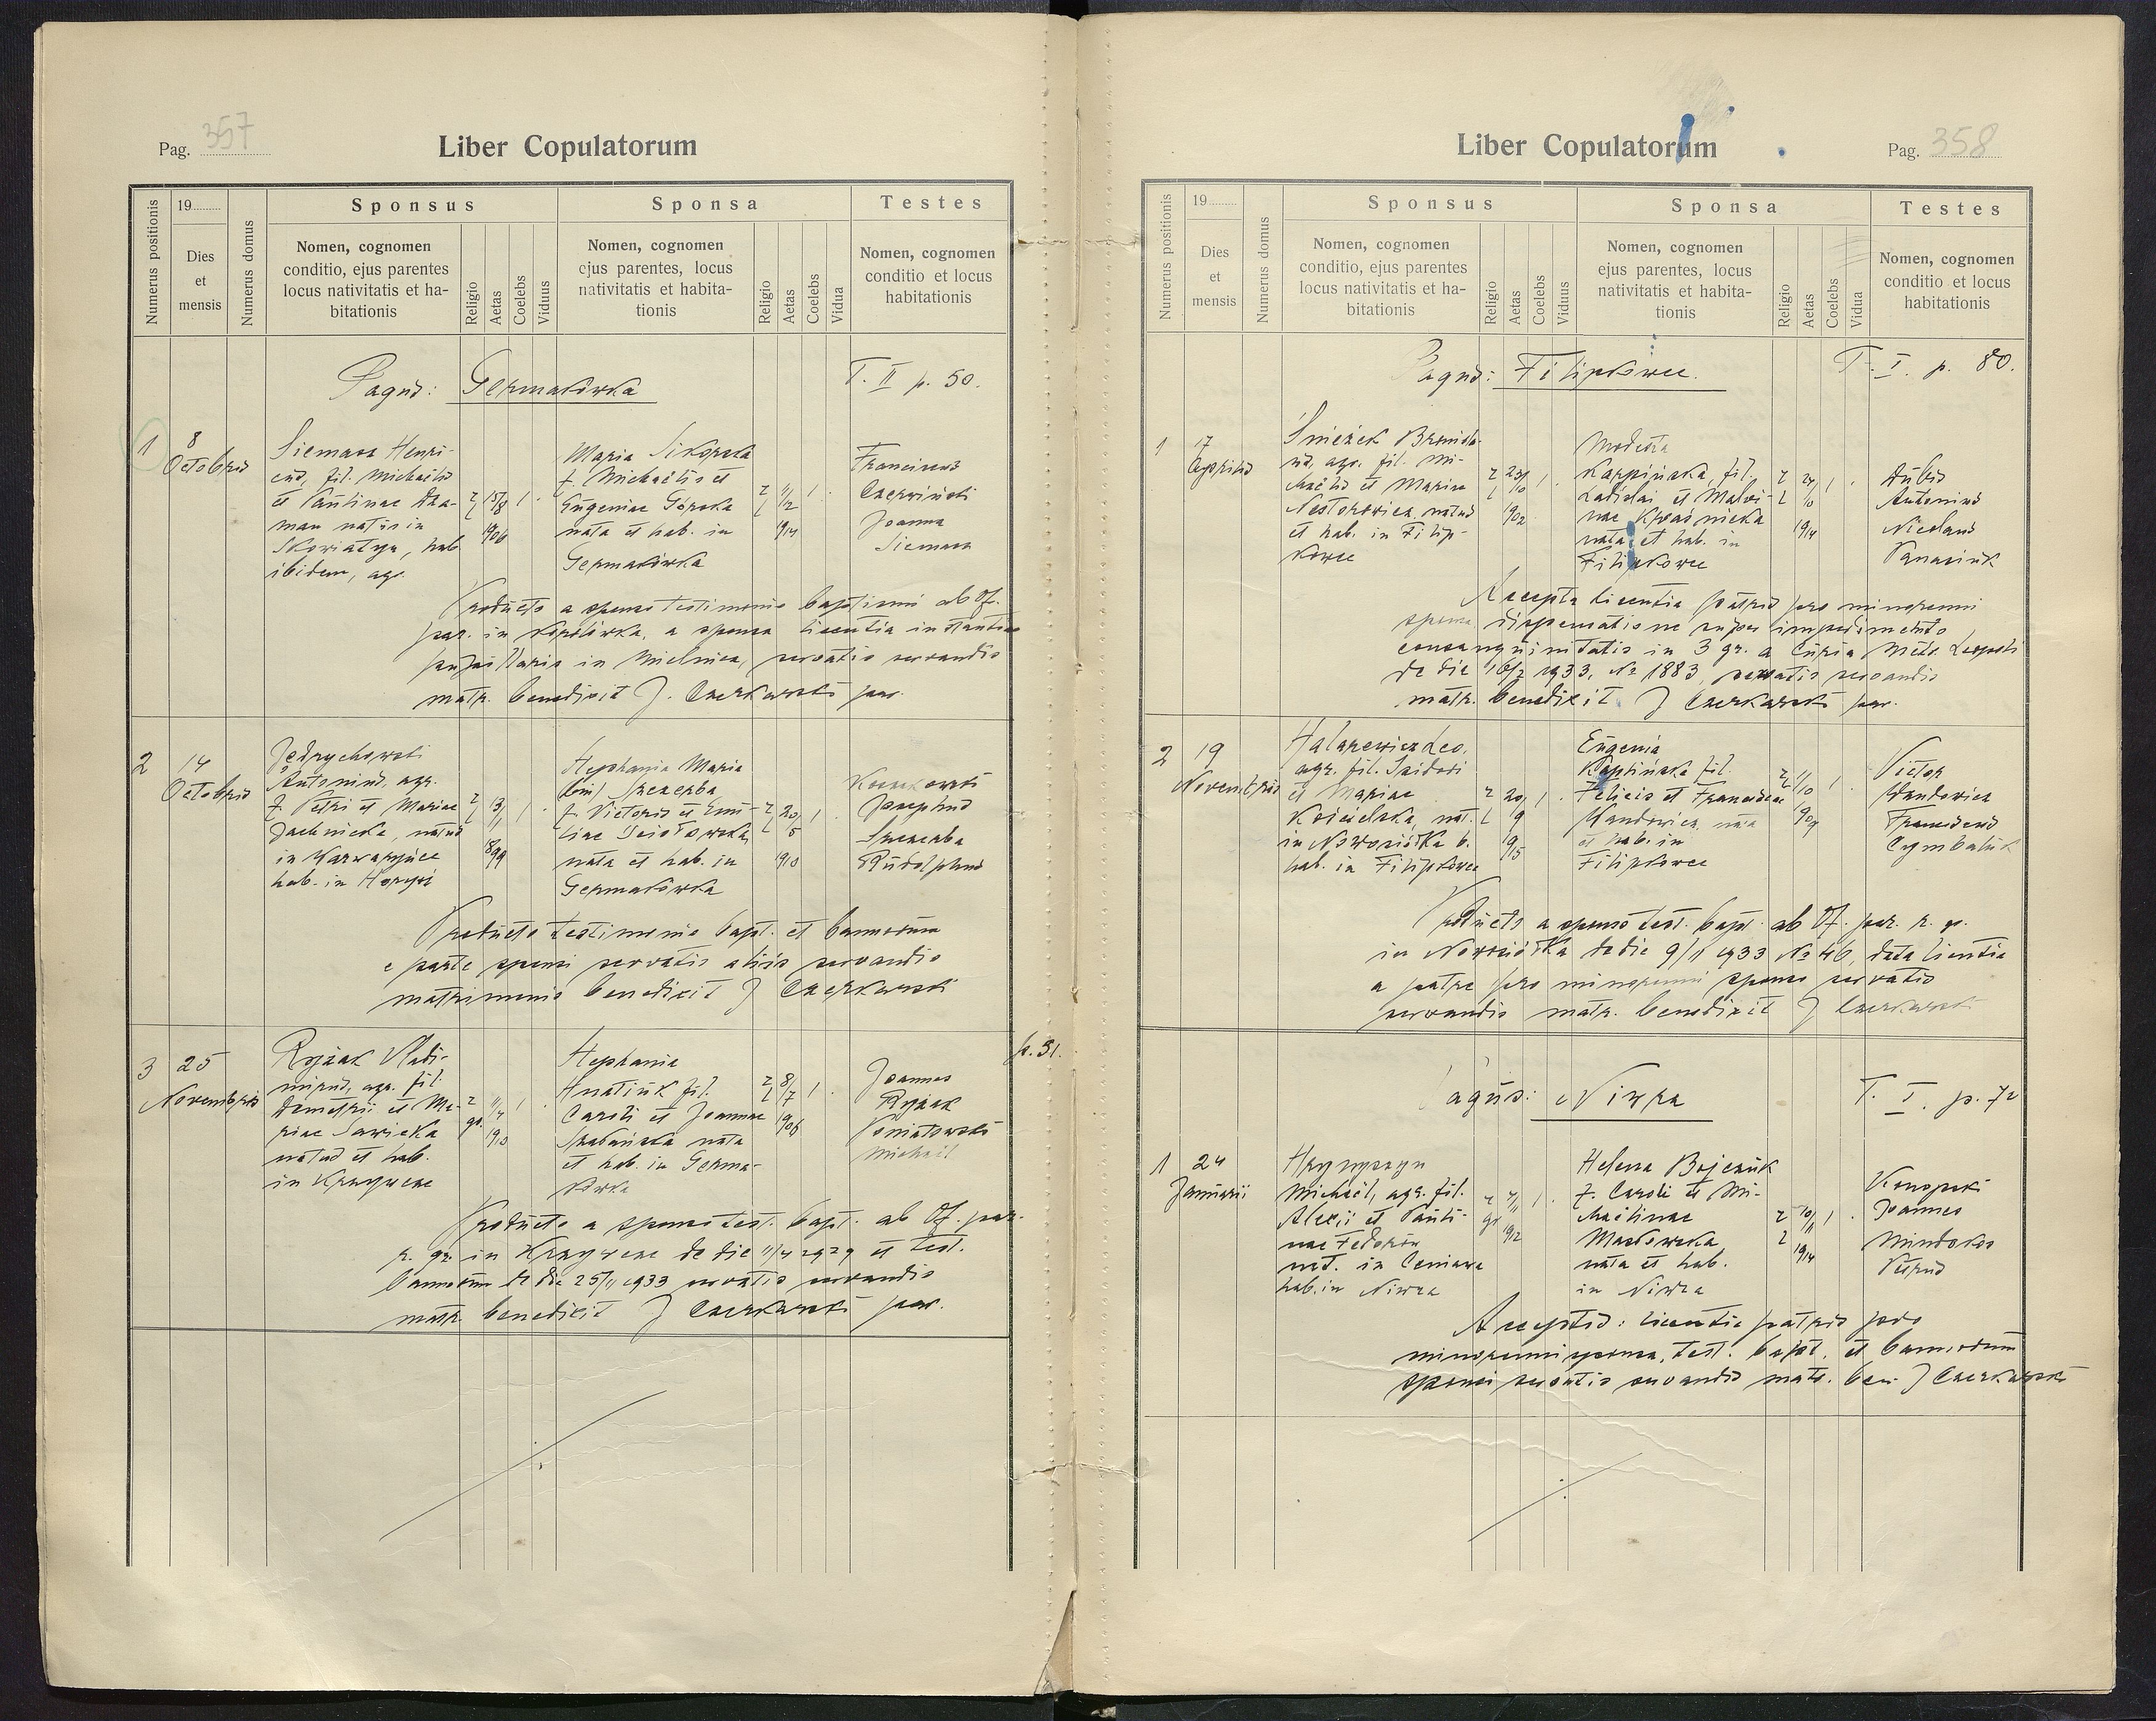 Pag. 357
Liber Copulatorum
Numerus positionis
19
Dies
et
mensis
Numerus domus
Sponsus
Nomen, cognomen
conditio, ejus parentes
locus nativitatis et ha-
bitationis
Religio
Aetas
Coelebs
Viduus
Sponsa
Nomen, cognomen
ejus parentes, locus
nativitatis et habita-
tionis
Religio
Aetas
Coelebs
Vidua
Testes
Nomen, cognomen
conditio et locus
habitationis
Pagus: Germakówka
T. II p. 50.
1
8
Octobris
Siemasz Henri-
cus, fil. Michaëlis
et Paulinae
natus in
Skowiatyn, hab.
ibidem, agr.
r l 15/8 1
906
Maria Sikorska
f. Michaëlis et
Eugeniae Górska
nata et hab. in
Germakówka
r l 1
914
Franciscus
Czerwiński
Joanna
Siemasz
Producto a sponso testimonio baptismi ab Of.
par. in a sponsa licentia instantiae
pupillaris in Mielnica, servatis servandis
matr. benedixit J. Czerkawski par.
2
14
Octobris
Jędrychowski
Antonius, agr.
f. Petri et Mariae
natus
in
hab. in
r l 13/1 1
899
Stephania Maria
(bin) Szczerba
f. Victoris et Emi-
liae
nata et hab. in
Germakówka
r l 20/5 1
910
Josephus
Szczerba
Rudolphus
Producto testimonio bapt. et bannorum
e parte sponsi servatis aliis servandis
matrimonio benedixit J Czerkawski
p. 51.
3
25
Novembris
Ryżak Vladi-
mirus, agr. fil.
Demetrii et Ma-
riae Sawicka
natus et hab.
in Krzywcze
r gr. 11/4 1
910
Stephania
Hnatiuk fil.
Caroli et Joannae
nata
et hab. in Germa-
kówka
r l 8/7 1
906
Joannes
Ryżak
Poniatowski
Michaël
Producto a sponso test. bapt. ab Of. par.
r. gr. in Krzywcze de die 11/4 1929 et test.
bannorum de die 25/11 1933 servatis servandis
matr. benedixit J Czerkawski par.
Liber Copulatorum
Pag. 358
Numerus positionis
19
Dies
et
mensis
Numerus domus
Sponsus
Nomen, cognomen
conditio, ejus parentes
locus nativitatis et ha-
bitationis
Religio
Aetas
Coelebs
Viduus
Sponsa
Nomen, cognomen
ejus parentes, locus
nativitatis et habita-
tionis
Religio
Aetas
Coelebs
Vidua
Testes
Nomen, cognomen
conditio et locus
habitationis
Pagus: Filipkowce.
T. I. p. 80.
1
17
Aprilis
Śnieżek Bronisla-
us, agr. fil. Mi-
chaëlis et Mariae
Nestorowicz, natus
et hab. in Filip-
kowce
r l 23/10 1.
902
Modesta
Karpińska, fil.
Ladislai et Malvi-
nae Kwaśnicka
nata et hab. in
Filipkowce
r l 24/10 1.
1914
Antonius
Nicolaus
Panasiuk
Accepta licentia patris pro minorenni
sponsa, dispensatione super impedimento
consanguinitatis in 3 gr. a Curia Metr. Leopoli
de die 1933. № 1883, servatis servandis
matr. benedixit. J Czerkawski par.
2
19
Novembris
Halarewicz Leo.
agr. fil. Isidori
et Mariae
Kościelska, nat.
in Nowosiółka b.
hab. in Filipkowce
r l 20/9 1.
915
Eugenia
Kaplińska fil.
Felicis et Franciscae
Wandowicz, nata
et hab. in
Filipkowce
r l 1/10 1
909
Victor
Wandowicz
Franciscus
Cymbaluk
Producto a sponso test. bapt. ab Of. par. r. gr.
in Nowosiółka de die 9/11 1933 № 46, data licentia
a patre pro minorenni sponso servatis
servandis matr. benedixit J Czerkawski
Pagus: Niwra
T. I. p. 72
1
24
Januarii
Hrynyszyn
Michaël, agr. fil.
Alexii et Pauli-
nae Fedorów
nat. in
hab. in Niwra
r gr 4/11 1.
912
Helena Bojczuk
f. Caroli et Mi-
chaëlinae
Masłowska
nata et hab.
in Niwra
r l 10/11 1.
1914
Konopski
Joannes
Petrus
Acceptis: licentia patris pro
minorenni sponsa, test. bapt. et bannorum
sponsi servatis servandis matr. ben. J Czerkawski